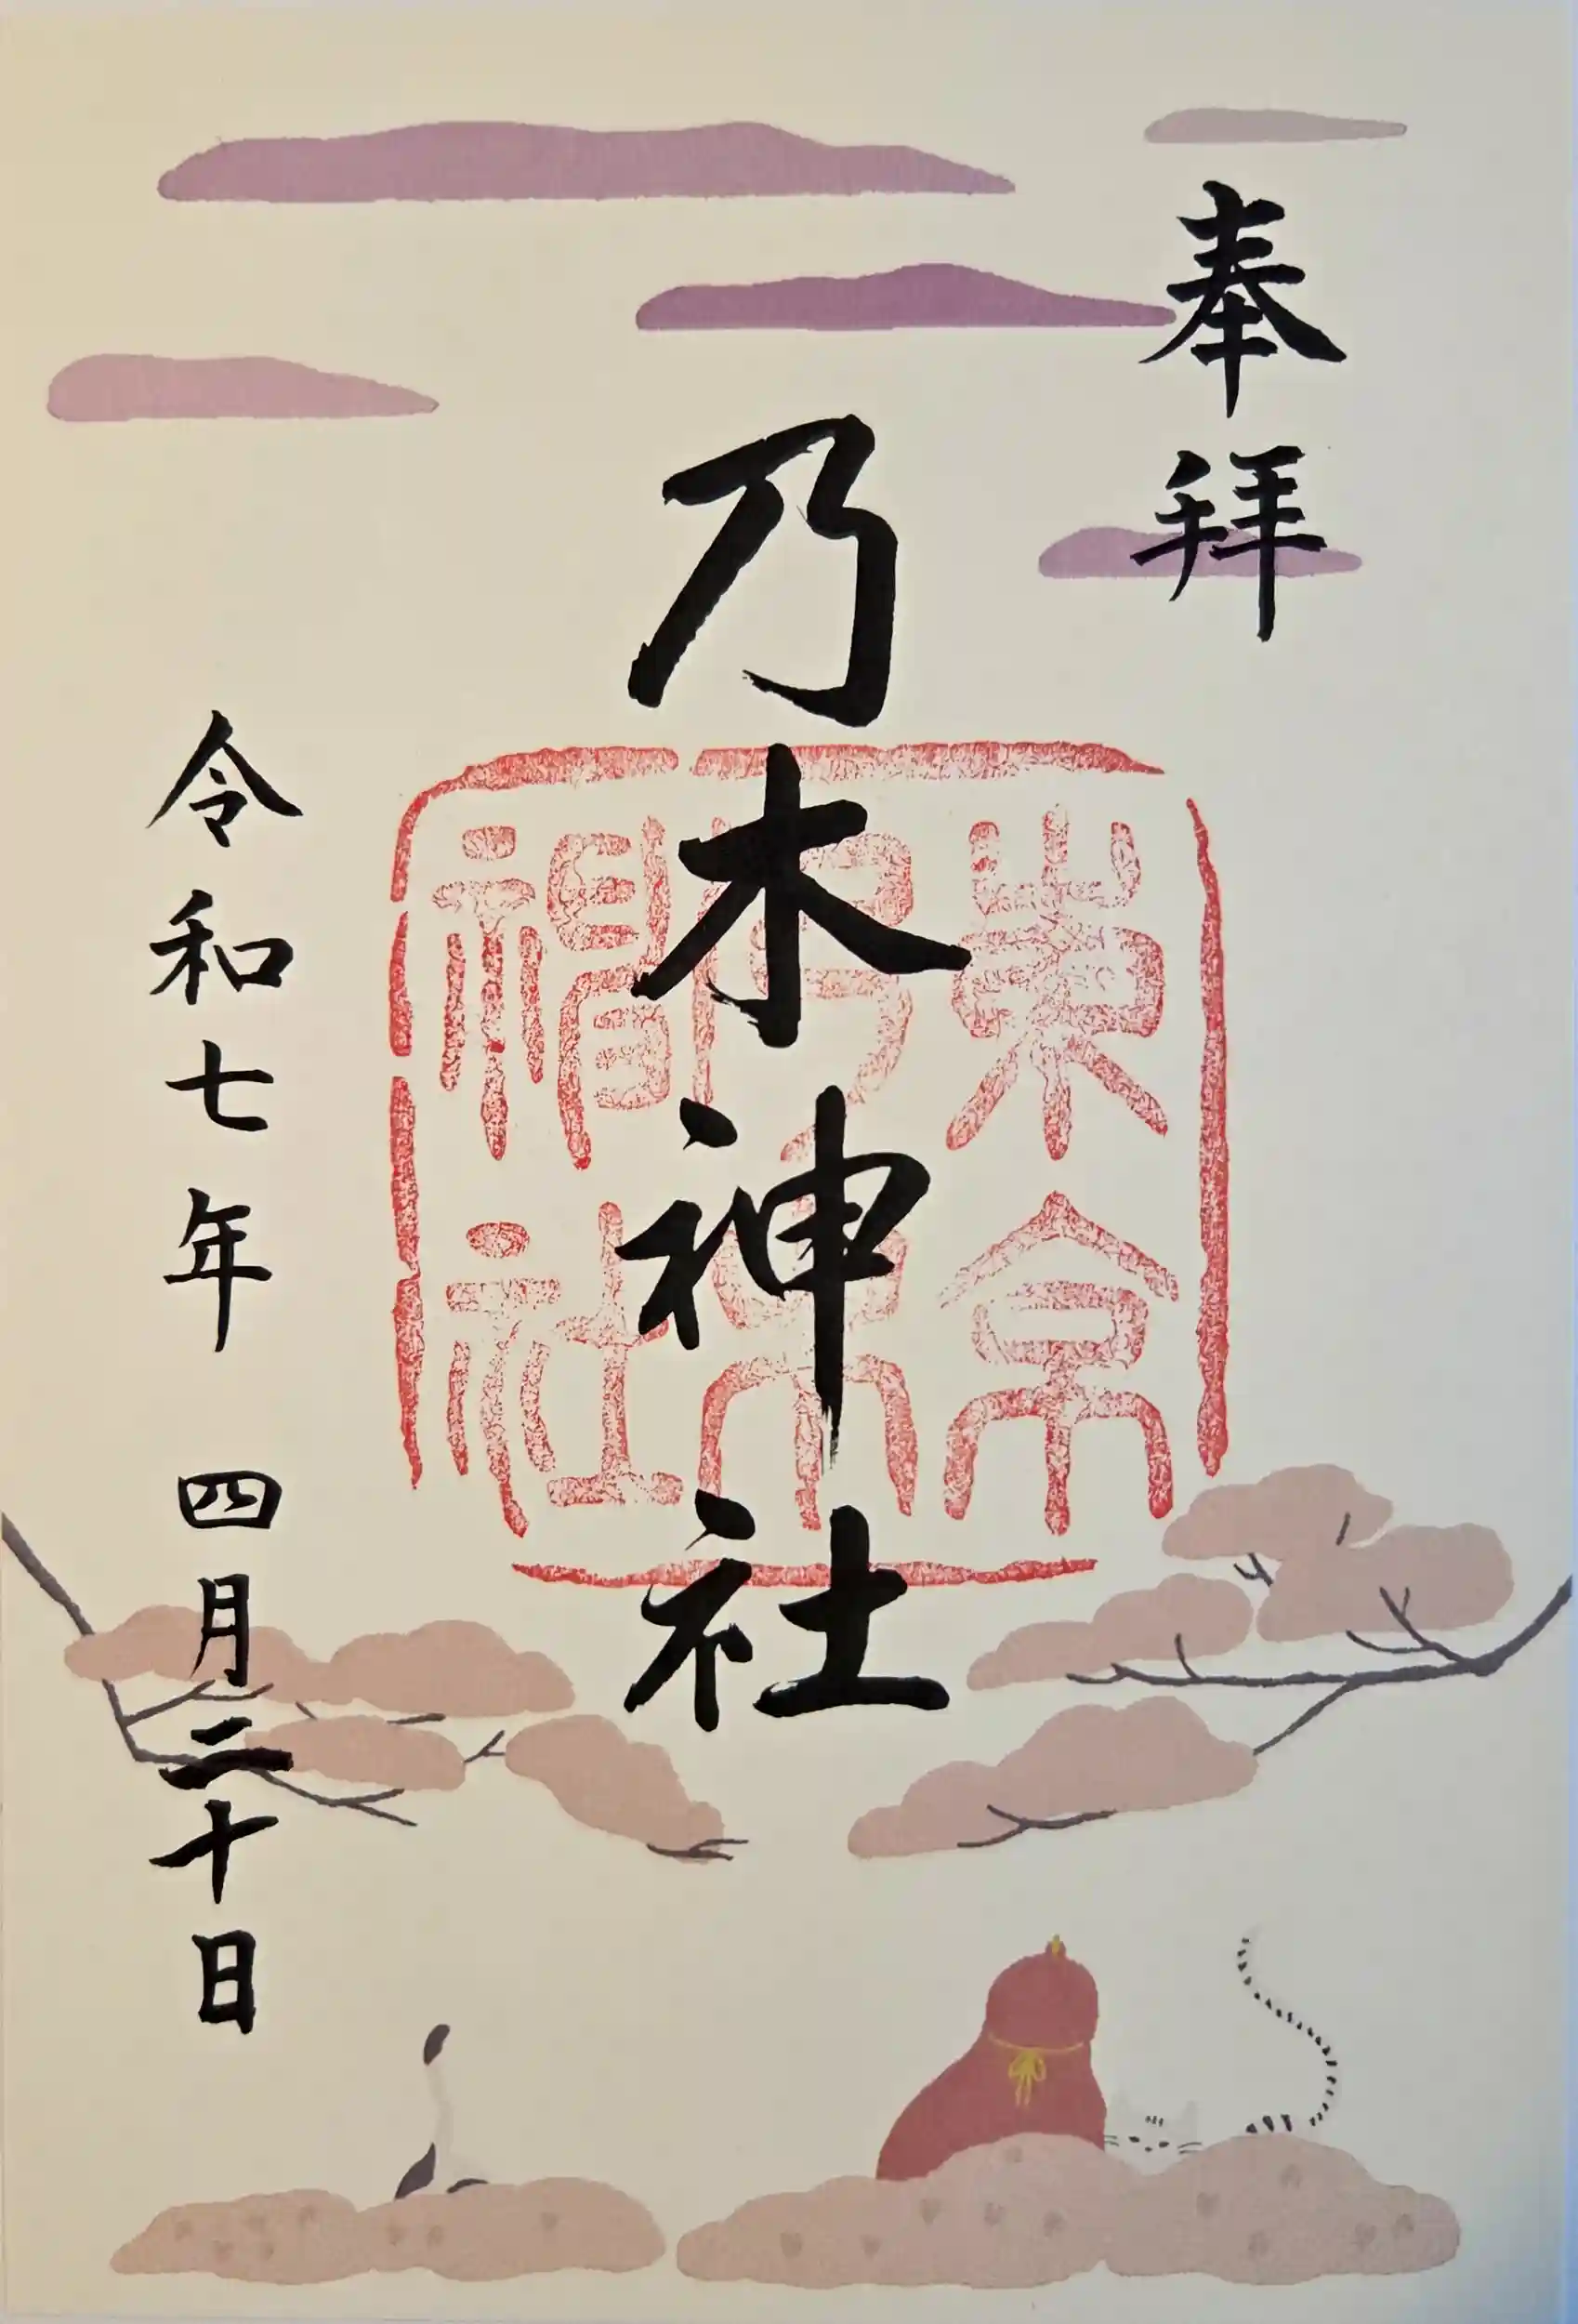 奉拝
乃木神社
東京
乃木
神社
令和七年 四月二十日